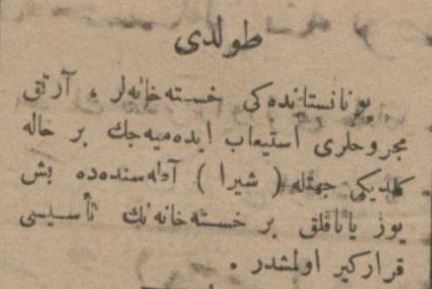 طولدی
یونانستانده‌كی خسته‌خانه‌لر ، آرتق
مجروحلری استیعاب ایده‌میه‌جك بر حاله
كلدیكی جهتله ( شیرا ) آطه‌سنده‌ده بش
یوز یاتاقلق بر خسته‌خانه‌نك تأسیسی
قراركیر اولمشدر .